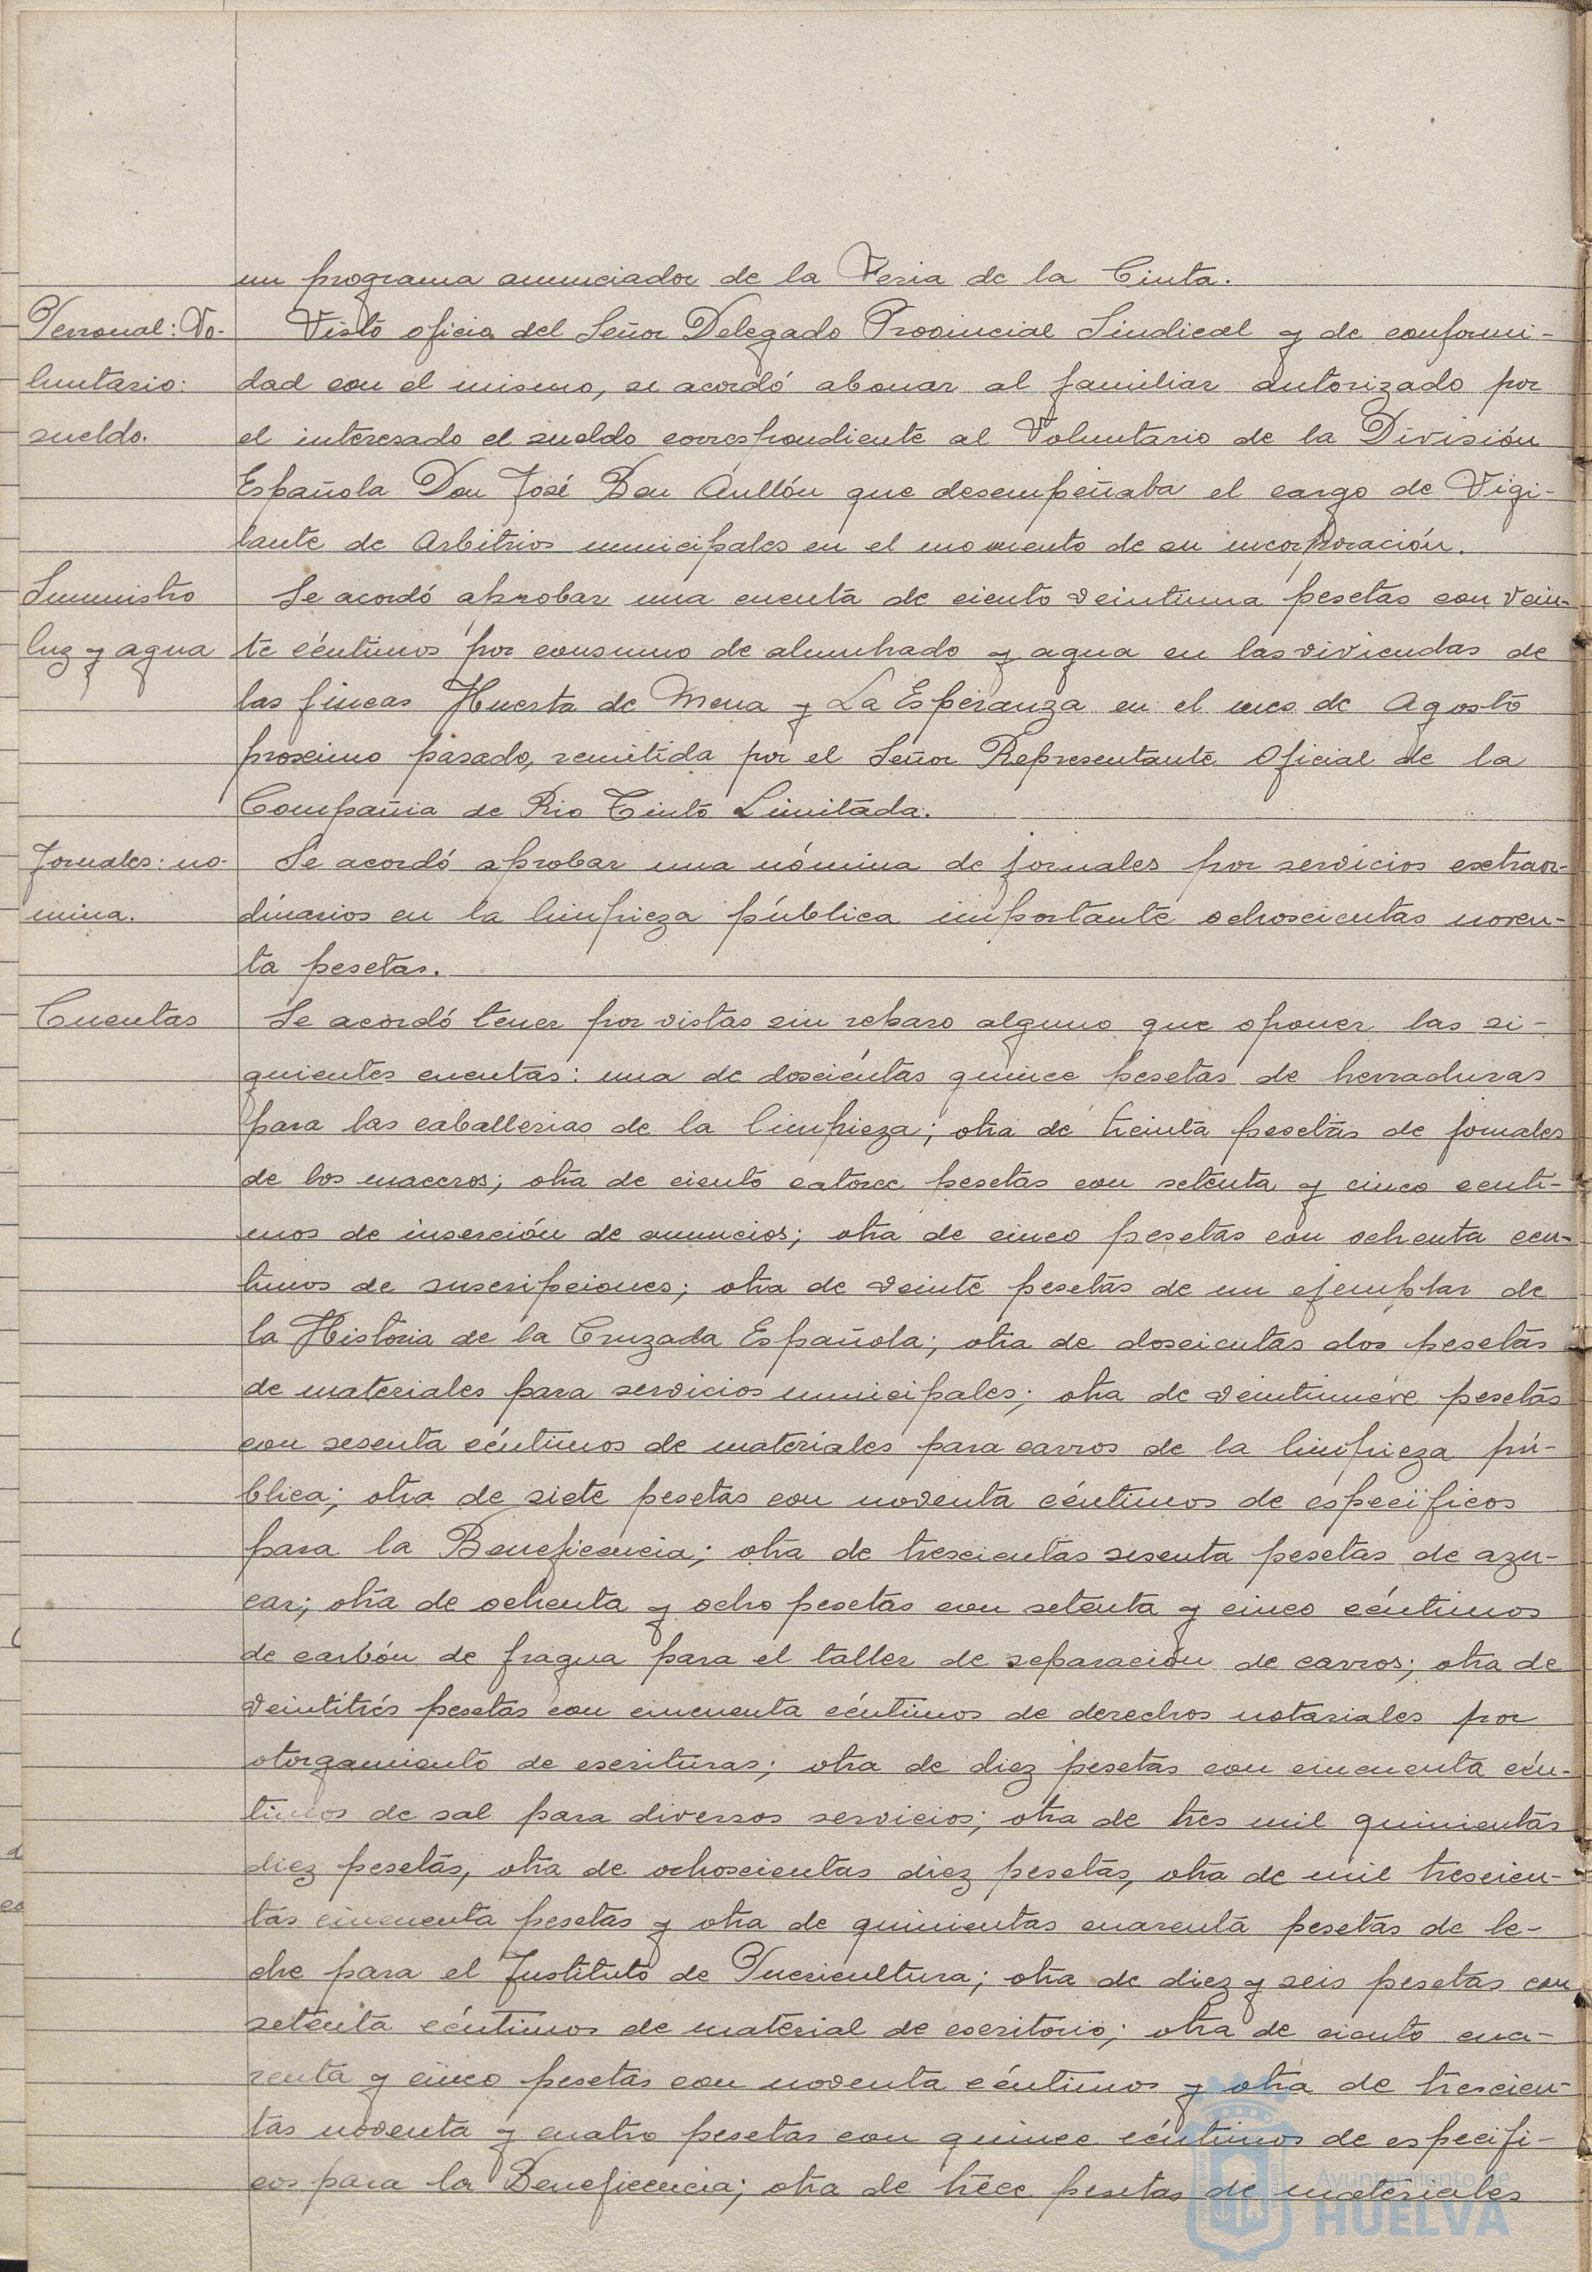 un programa anunciador de la Feria de la Cinta.
Personal: Vo-
luntario:
sueldo.
Visto oficio del Señor Delegado Provincial Sindical y de conformi-
dad con el mismo, se acordó abonar al familiar autorizado por
el interesado el sueldo correspondiente al Voluntario de la División
Española Don José Bou Aullón que desempeñaba el cargo de Vigi-
lante de Arbitrios municipales en el momento de su incorporación.
Suministro
luz y agua
Se acordó aprobar una cuenta de ciento veintiuna pesetas con vein-
te céntimos por consumo de alumbrado y agua en las viviendas de
las fincas Huerta de Mena y La Esperanza en el mes de Agosto
proximo pasado, remitida por el Señor Representante Oficial de la
Compañia de Rio Tinto Limitada.
Jornales: no-
mina.
Se acordó aprobar una nómina de jornales por servicios extraor-
dinarios en la limpieza pública importante ochoscientas noven-
ta pesetas.
Cuentas
Se acordó tener por vistas sin reparo alguno que oponer las si-
guientes cuentas: una de doscientas quince pesetas de herraduras
para las caballerias de la limpieza; otra de treinta pesetas de jornales
de los maceros; otra de ciento catorce pesetas con setenta y cinco centi-
mos de inserción de anuncios; otra de cinco pesetas con ochenta cen-
timos de suscripciones; otra de veinte pesetas de un ejemplar de
la Historia de la Cruzada Española; otra de doscientas dos pesetas
de materiales para servicios municipales; otra de veintinueve pesetas
con sesenta céntimos de materiales para carros de la limpieza pú-
blica; otra de siete pesetas con noventa céntimos de especificos
para la Beneficencia; otra de trescientas sesenta pesetas de azu-
car; otra de ochenta y ocho pesetas con setenta y cinco céntimos
de carbón de fragua para el taller de separación de carros; otra de
veintitrés pesetas con cincuenta céntimos de derechos notariales por
otorgamiento de escrituras; otra de diez pesetas con cincuenta cén-
timos de sal para diversos servicios; otra de tres mil quinientas
diez pesetas, otra de ochoscientas diez pesetas, otra de mil trescien-
tas cincuenta pesetas y otra de quinientas cuarenta pesetas de le-
che para el Instituto de Puericultura; otra de diez y seis pesetas con
setenta céntimos de material de escritorio; otra de ciento cua-
renta y cinco pesetas con noventa céntimos y otra de trescien-
tas noventa y cuatro pesetas con quince céntimos de especifi-
cos para la Beneficencia; otra de trece pesetas de materiales
Ayuntamiento de
HUELVA